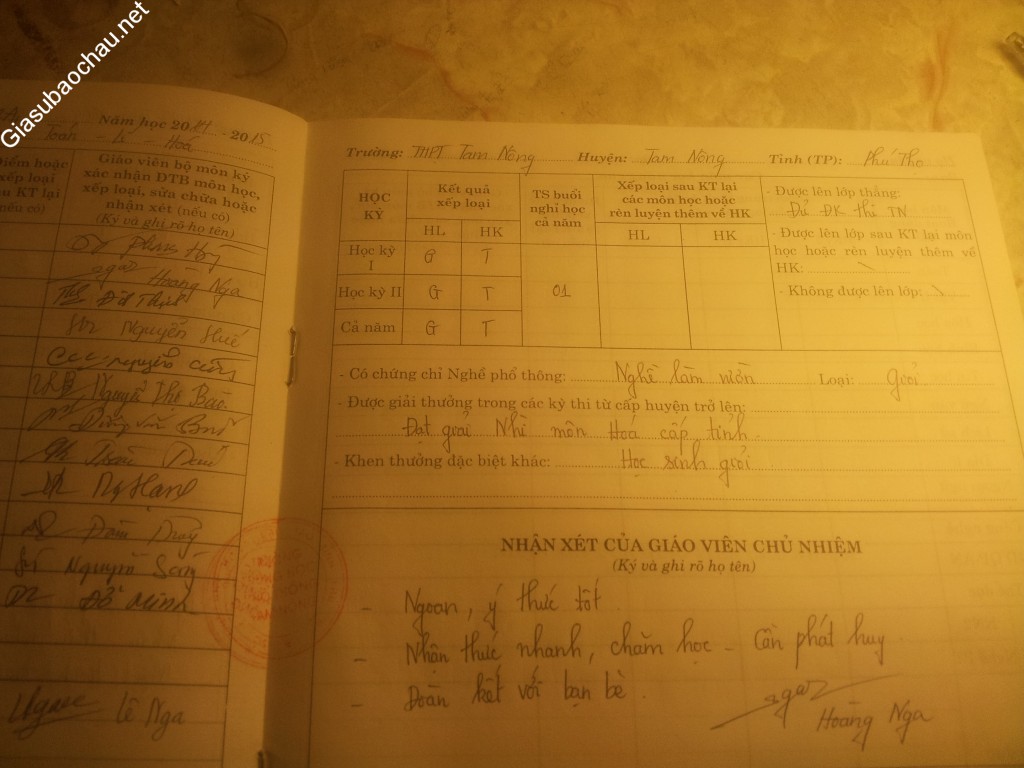 Giasubaochau.net
Năm học 2014 - 2015
Toán - Lí - Hoá
Điểm hoặc
xếp loại
KT lại
(nếu có)
Giáo viên bộ môn ký
xác nhận ĐTB môn học,
xếp loại, sửa chữa hoặc
nhận xét (nếu có)
(Ký và ghi rõ họ tên)
Hoàng Nga
Nguyễn Huế
Nguyễn
Đàm Duy
Nguyễn
Đỗ Minh
Lê Nga
Trường: THPT Tam Nông Huyện: Tam Nông Tỉnh (TP): Phú Thọ
HỌC KỲ
Kết quả xếp loại
TS buổi nghỉ học cả năm
Xếp loại sau KT lại các môn học hoặc rèn luyện thêm về HK
HL HK HL HK
Học kỳ I G T
Học kỳ II G T 01
Cả năm G T
- Được lên lớp thẳng:
Đủ ĐK thi TN
- Được lên lớp sau KT lại môn
học hoặc rèn luyện thêm về
HK: \
- Không được lên lớp: \
- Có chứng chỉ Nghề phổ thông: Nghề làm vườn Loại: giỏi
- Được giải thưởng trong các kỳ thi từ cấp huyện trở lên:
Đạt giải Nhì môn Hoá cấp tỉnh.
- Khen thưởng đặc biệt khác: Học sinh giỏi
NHẬN XÉT CỦA GIÁO VIÊN CHỦ NHIỆM
(Ký và ghi rõ họ tên)
- Ngoan, ý thức tốt.
- Nhận thức nhanh, chăm học - Cần phát huy.
- Đoàn kết với bạn bè.
Hoàng Nga